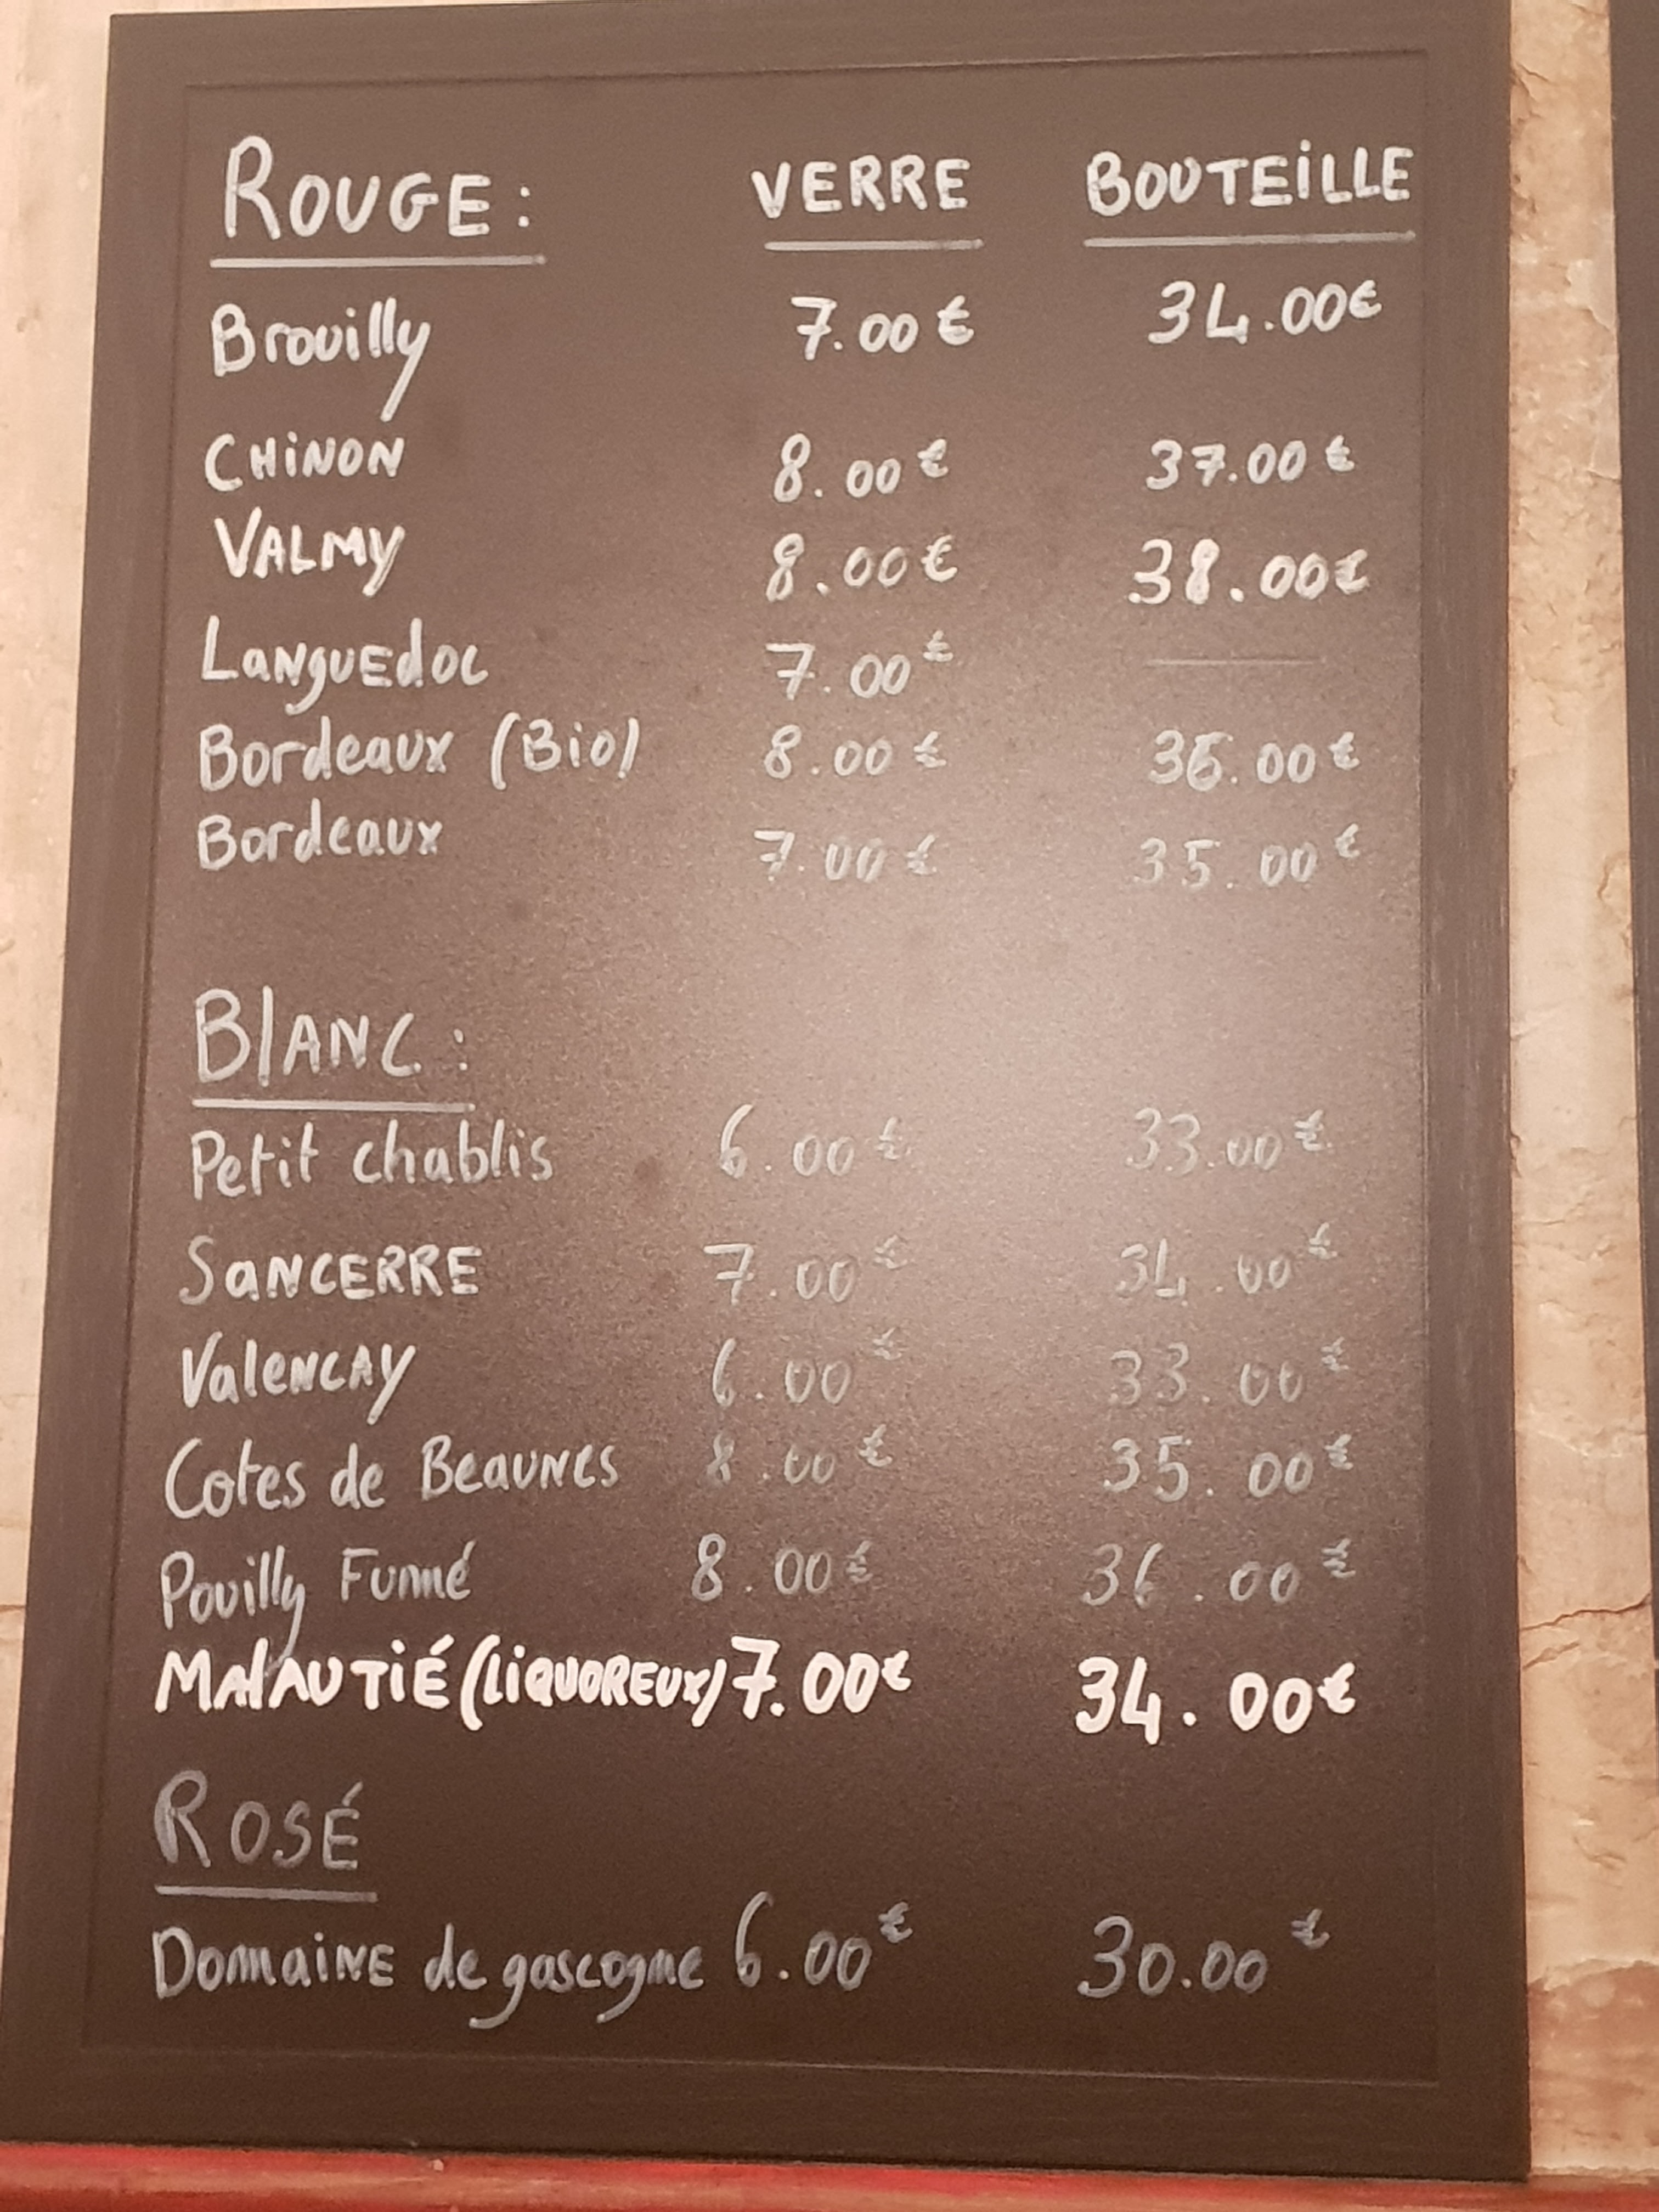 ROUGE: VERRE BOUTEILLE
Brouilly 7.00€ 34.00€
CHINON 8.00€ 37.00€
VALMY 8.00€ 38.00€
LaNguEdoc 7.00€
Bordeaux (Bio) 8.00€ 36.00€
Bordeaux 7.00€ 35.00€
BlANC:
Petit chablis 6.00€ 33.00€
SaNCERRE 7.00€ 34.00€
ValeNCAY 6.00€ 33.00€
Cotes de BeauNes 8.00€ 35.00€
Pouilly Fumé 8.00€ 36.00€
MAlAUTIÉ (LIQUOREUX) 7.00€ 34.00€
ROSÉ
DomaiNE de gascogne 6.00€ 30.00€